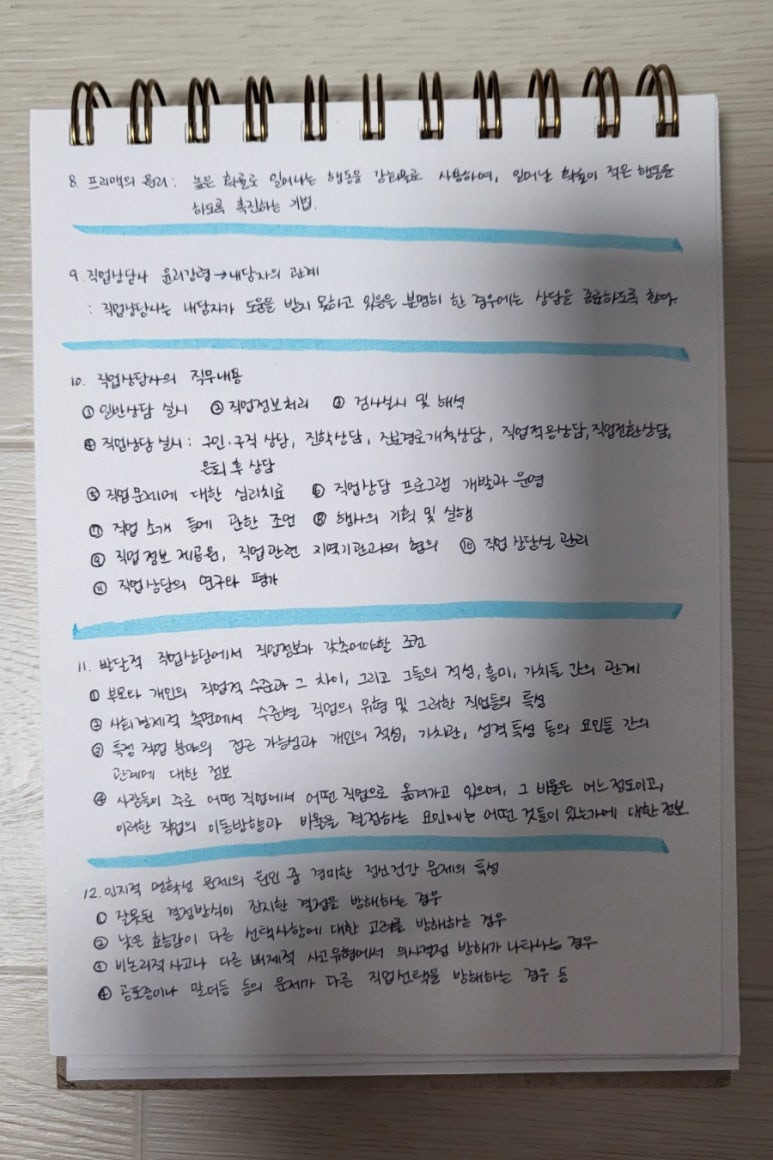 8. 프리맥의 원리 : 높은 확률로 일어나는 행동을 강화물로 사용하여, 일어날 확률이 적은 행동을
하도록 촉진하는 기법.
9. 직업상담사 윤리강령→내담자의 관계
: 직업상담사는 내담자가 도움을 받지 못하고 있음을 분명히 한 경우에는 상담을 종료하도록 한다.
10. 직업상담사의 직무내용
① 일반상담 실시 ② 직업정보처리 ③ 검사실시 및 해석
④ 직업상담 실시 : 구인·구직 상담, 진학상담, 진로경로개척상담, 직업적응상담, 직업전환상담,
은퇴 후 상담
⑤ 직업문제에 대한 심리치료 ⑥ 직업상담 프로그램 개발과 운영
⑦ 직업 소개 등에 관한 조언 ⑧ 행사의 기획 및 실행
⑨ 직업정보 제공원, 직업관련 지역기관과의 협의 ⑩ 직업상담실 관리
⑪ 직업상담의 연구타 평가
11. 발달적 직업상담에서 직업정보가 갖추어야할 조건
① 부모타 개인의 직업적 수준과 그 차이, 그리고 그들의 적성, 흥미, 가치들 간의 관계
② 사회경제적 측면에서 수준별 직업의 유형 및 그러한 직업들의 특성
③ 특정 직업 분야의 접근 가능성과 개인의 적성, 가치관, 성격특성 등의 요인들 간의
관계에 대한 정보
④ 사람들이 주로 어떤 직업에서 어떤 직업으로 옮겨가고 있으며, 그 비율은 어느정도이고,
이러한 직업의 이동방향과 비율을 결정하는 요인에는 어떤 것들이 있는가에 대한 정보
12. 인지적 명확성 문제의 원인 중 경미한 정신건강 문제의 특성
① 잘못된 결정방식이 진지한 결정을 방해하는 경우
② 낮은 효능감이 다른 선택사항에 대한 고려를 방해하는 경우
③ 비논리적 사고나 다른 배제적 사고유형에서 의사결정 방해가 나타나는 경우
④ 공포증이나 말더듬 등의 문제가 다른 직업선택을 방해하는 경우 등